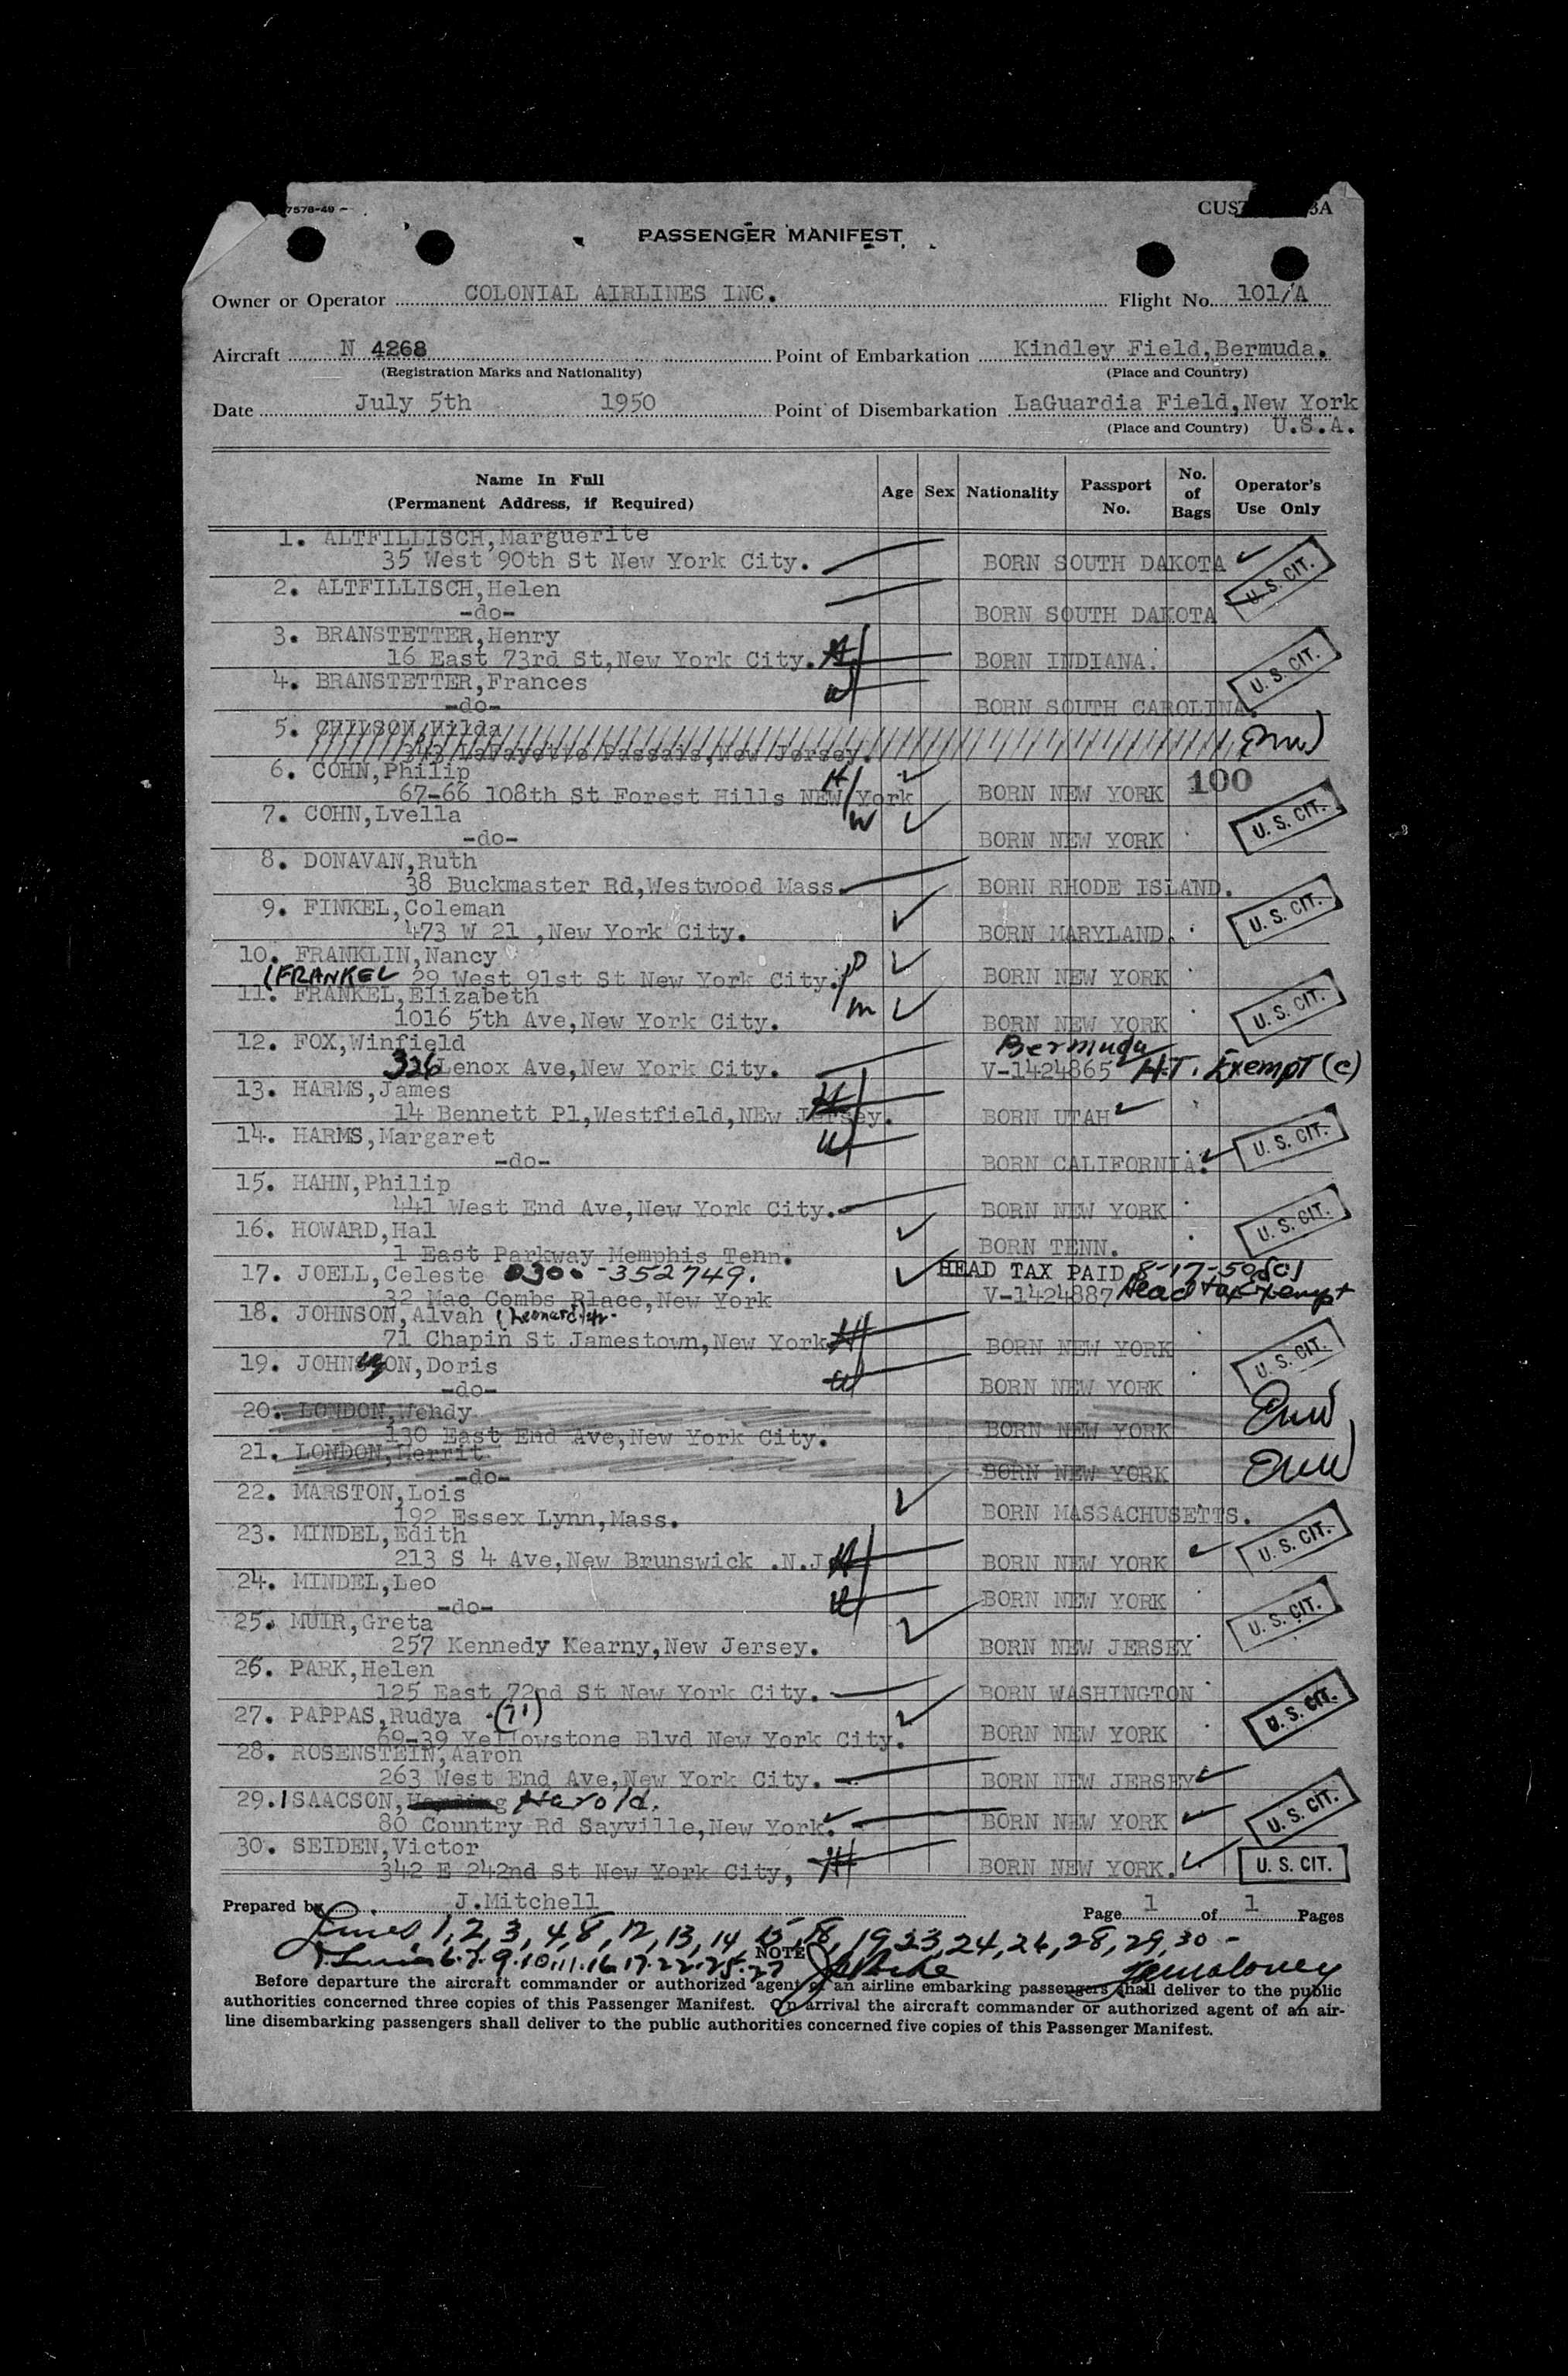 7578-49
CUST 3A
PASSENGER MANIFEST
Owner or Operator COLONIAL AIRLINES INC. Flight No. 101/A
Aircraft N 4268 Point of Embarkation Kindley Field,Bermuda.
(Registration Marks and Nationality) (Place and Country)
Date July 5th 1950 Point of Disembarkation LaGuardia Field,New York
(Place and Country) U.S.A.
Name In Full (Permanent Address, if Required) Age Sex Nationality Passport No. No. of Bags Operator's Use Only
1. ALTFILLISCH,Marguerite
35 West 90th St New York City. BORN SOUTH DAKOTA U. S. CIT.
2. ALTFILLISCH,Helen
-do- BORN SOUTH DAKOTA
3. BRANSTETTER,Henry
16 East 73rd St,New York City. H BORN INDIANA. U. S. CIT.
4. BRANSTETTER,Frances W
-do- BORN SOUTH CAROLINA.
5. CHILSON,Hilda
343 LaFayette Passais,New Jersey.
6. COHN,Philip H 100
67-66 108th St Forest Hills NEW York BORN NEW YORK
7. COHN,Lvella W U. S. CIT.
-do- BORN NEW YORK
8. DONAVAN,Ruth
38 Buckmaster Rd,Westwood Mass. BORN RHODE ISLAND.
9. FINKEL,Coleman U. S. CIT.
473 W 21 ,New York City. BORN MARYLAND.
10. FRANKLIN,Nancy D
(FRANKEL 29 West 91st St New York City. BORN NEW YORK
11. FRANKEL,Elizabeth m U. S. CIT.
1016 5th Ave,New York City. BORN NEW YORK
12. FOX,Winfield Bermuda
326 Lenox Ave,New York City. V-1424865 H.T. Exempt (c)
13. HARMS,James H
14 Bennett Pl,Westfield,NEw Jersey. BORN UTAH
14. HARMS,Margaret W U. S. CIT.
-do- BORN CALIFORNIA.
15. HAHN,Philip
441 West End Ave,New York City. BORN NEW YORK U. S. CIT.
16. HOWARD,Hal
1 East Parkway Memphis Tenn. BORN TENN.
17. JOELL,Celeste 0300-352749. HEAD TAX PAID 8-17-50
32 Mac Combs Place,New York V-1424887 Head tax Exempt
18. JOHNSON,Alvah
71 Chapin St Jamestown,New York H BORN NEW YORK U. S. CIT.
19. JOHNSON,Doris W
-do- BORN NEW YORK
20. LONDON,Wendy
130 East End Ave,New York City. BORN NEW YORK
21. LONDON,Merrit
-do- BORN NEW YORK
22. MARSTON,Lois
192 Essex Lynn,Mass. BORN MASSACHUSETTS.
23. MINDEL,Edith U. S. CIT.
213 S 4 Ave,New Brunswick .N.J H BORN NEW YORK
24. MINDEL,Leo W
-do- BORN NEW YORK
25. MUIR,Greta U. S. CIT.
257 Kennedy Kearny,New Jersey. BORN NEW JERSEY
26. PARK,Helen
125 East 72nd St New York City. BORN WASHINGTON
27. PAPPAS,Rudya U. S. CIT.
69-39 Yellowstone Blvd New York City. BORN NEW YORK
28. ROSENSTEIN,Aaron
263 West End Ave,New York City. BORN NEW JERSEY
29. ISAACSON, Harold.
80 Country Rd Sayville,New York. BORN NEW YORK U. S. CIT.
30. SEIDEN,Victor
342 E 242nd St New York City, H BORN NEW YORK. U. S. CIT.
Prepared by J.Mitchell Page 1 of 1 Pages
Lines 1, 2, 3, 4, 8, 12, 13, 14, 15, 18, 19, 23, 24, 26, 28, 29, 30 -
Lines 6.7.9.10.11.16.17.22.25.27
NOTE
Before departure the aircraft commander or authorized agent of an airline embarking passengers shall deliver to the public
authorities concerned three copies of this Passenger Manifest. On arrival the aircraft commander or authorized agent of an air-
line disembarking passengers shall deliver to the public authorities concerned five copies of this Passenger Manifest.